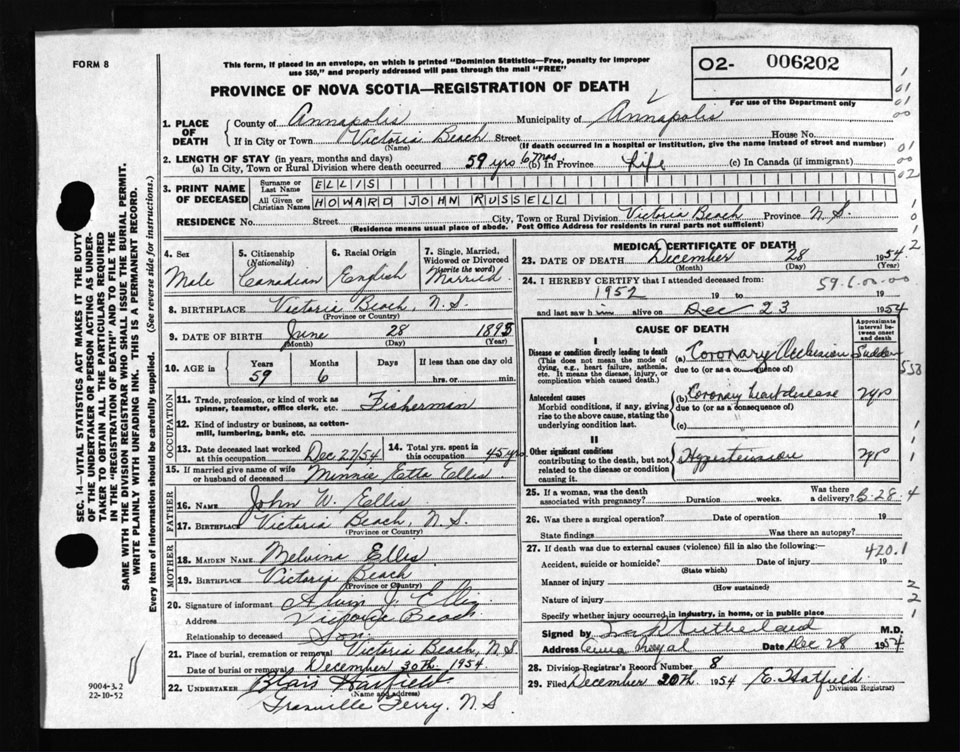 FORM 8
This form, if placed in an envelope, on which is printed "Dominion Statistics—Free, penalty for improper
use $50," and properly addressed will pass through the mail "FREE"
PROVINCE OF NOVA SCOTIA—REGISTRATION OF DEATH
02- 006202
For use of the Department only
1. PLACE OF DEATH
County of Annapolis Municipality of Annapolis
If in City or Town Victoria Beach Street House No.
(Name) (If death occurred in a hospital or institution, give the name instead of street and number)
2. LENGTH OF STAY (in years, months and days)
(a) In City, Town or Rural Division where death occurred 59 yrs 6 mos (b) In Province Life (c) In Canada (if immigrant)
3. PRINT NAME OF DECEASED
Surname or Last Name ELLIS
All Given or Christian Names HOWARD JOHN RUSSELL
RESIDENCE No. Street City, Town or Rural Division Victoria Beach Province N.S.
(Residence means usual place of abode. Post Office Address for residents in rural parts not sufficient)
4. Sex
Male
5. Citizenship (Nationality)
Canadian
6. Racial Origin
English
7. Single, Married, Widowed or Divorced (Write the word)
Married
8. BIRTHPLACE Victoria Beach, N.S.
(Province or Country)
9. DATE OF BIRTH June 28 1895
(Month) (Day) (Year)
10. AGE in Years Months Days If less than one day old
59 6 hrs. or min.
OCCUPATION
11. Trade, profession, or kind of work as
spinner, teamster, office clerk, etc. Fisherman
12. Kind of industry or business, as cotton-
mill, lumbering, bank, etc.
13. Date deceased last worked at this occupation Dec 27/54
14. Total yrs. spent in this occupation 45 yrs
15. If married give name of wife
or husband of deceased Minnie Etta Ellis
FATHER
16. NAME John W. Ellis
17. BIRTHPLACE Victoria Beach, N.S.
(Province or Country)
MOTHER
18. MAIDEN NAME Melvina Ellis
19. BIRTHPLACE Victoria Beach
(Province or Country)
20. Signature of informant Alvin J. Ellis
Address Victoria Beach
Relationship to deceased Son
21. Place of burial, cremation or removal Victoria Beach, N.S.
Date of burial or removal December 30th 1954
22. UNDERTAKER Blair Hatfield
(Name and address)
Granville Ferry, N.S
MEDICAL CERTIFICATE OF DEATH
23. DATE OF DEATH December 28 1954
(Month) (Day) (Year)
24. I HEREBY CERTIFY that I attended deceased from: 59.6.00-00
1952 19 to 19
and last saw him alive on Dec 23 1954
CAUSE OF DEATH
Approximate interval between onset and death
I
Disease or condition directly leading to death
(This does not mean the mode of
dying, e.g., heart failure, asthenia,
etc. It means the disease, injury, or
complication which caused death.)
(a) Coronary Occlusion Sudden
due to (or as a consequence of)
Antecedent causes
Morbid conditions, if any, giving
rise to the above cause, stating the
underlying condition last.
(b) Coronary heart disease 2 yrs
due to (or as a consequence of)
(c)
II
Other significant conditions
contributing to the death, but not
related to the disease or condition
causing it.
Hypertension 2 yrs
25. If a woman, was the death
associated with pregnancy? Duration weeks. Was there a delivery?
26. Was there a surgical operation? Date of operation 19
State findings Was there an autopsy?
27. If death was due to external causes (violence) fill in also the following:— 420.1
Accident, suicide or homicide? Date of injury 19
(State which)
Manner of injury
(How sustained)
Nature of injury
Specify whether injury occurred in industry, in home, or in public place
Signed by Sutherland M.D.
Address Royal Date Dec 28 1954
28. Division Registrar's Record Number 8
29. Filed December 20th 1954 E. Hatfield
(Division Registrar)
SEC. 14—VITAL STATISTICS ACT MAKES IT THE DUTY
OF THE UNDERTAKER OR PERSON ACTING AS UNDER-
TAKER TO OBTAIN ALL THE PARTICULARS REQUIRED
IN THE "REGISTRATION OF DEATH" AND TO FILE THE
SAME WITH THE DIVISION REGISTRAR WHO SHALL ISSUE THE BURIAL PERMIT.
WRITE PLAINLY WITH UNFADING INK. THIS IS A PERMANENT RECORD.
Every item of information should be carefully supplied. (See reverse side for instructions.)
9004-3.2
22-10-52